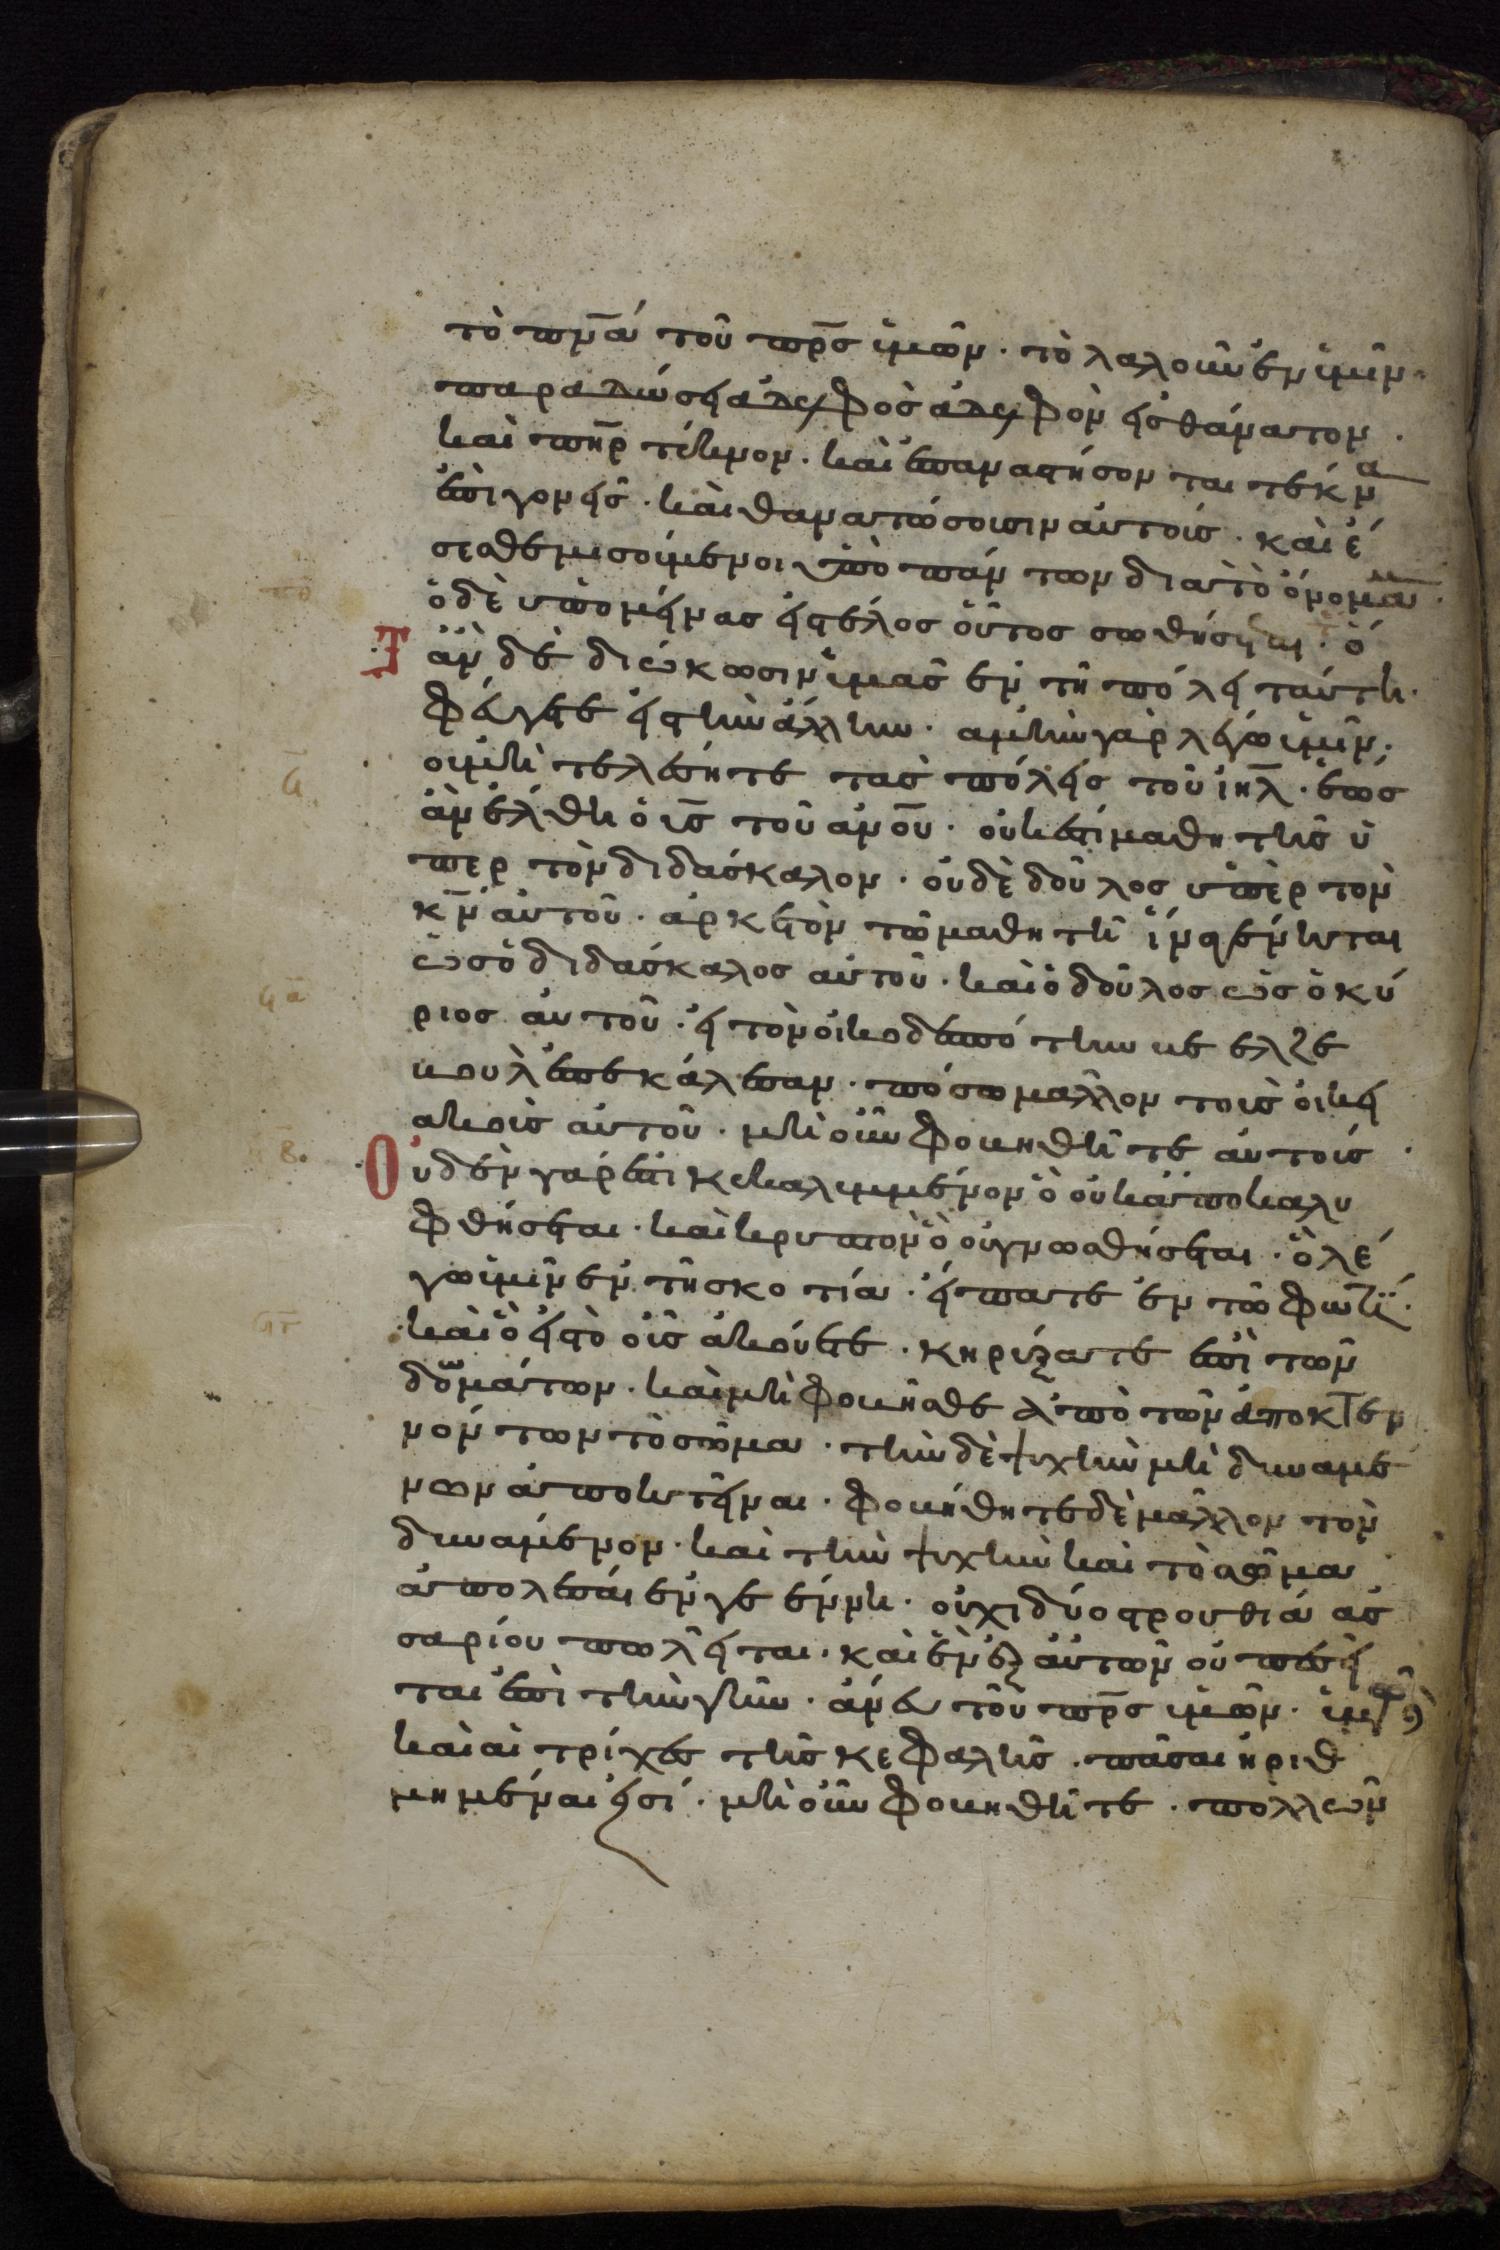 τὸ πν̅ά τοῦ πρ̅σ ὑμῶν · τὸ λαλοῦν ἐν ὑμῖν ·
παραδώσει ἀδελφὸσ ἀδελφὸν εἰσ θάνατον ·
καὶ πη̅ρ τέκνον · καὶ ἐπαναστήσονται τέκνα
ἐπι γονεῖσ · καὶ θανατώσουσιν αὐτούσ · καὶ ἔ
σεσθε μισούμενοι ὑπὸ πάντων διὰ τὸ ὄνομά μου ·
ὁ δὲ ὑπομείνασ εἰσ τέλοσ οὗτοσ σωθήσεται · ὅ
Ἐὰν δὲ διώκωσιν ὑμᾶσ ἐν τῆ πόλει ταύτη ·
φεύγετε εἰσ τὴν ἄλλην · ἀμὴν γὰρ λέγω ὑμῖν ·
οὐ μὴ τελέσητε τὰσ πόλεισ τοῦ ιη̅λ · ἕωσ
ἂν ἔλθη ὁ υι̅σ τοῦ αν̅ου · οὐκ ἔστι μαθητὴσ ὑ
περ τὸν διδάσκαλον · οὐδὲ δοῦλοσ ὑπὲρ τὸν
κ̅ν αὐτοῦ · ἀρκετὸν τῶ μαθητῆ ἵνα γένηται
ὡσ ὁ διδάσκαλοσ αὐτοῦ · καὶ ὁ δοῦλοσ ὡσ ὁ κύ
ριοσ αὐτοῦ · εἰ τὸν οἰκοδεσπότην βεελζε
βουλ ἐπεκάλεσαν · πόσω μᾶλλον τοὺσ οἰκει
ακοὺσ αὐτοῦ · μὴ οὖν φοβηθῆτε αὐτούσ ·
Οὐδὲν γάρ ἐστι κεκαλυμμένον ὃ οὐκ ἀποκαλυ
φθήσεται · καὶ κρυπτὸν ὃ οὐ γνωσθήσεται · ὃ λέ
γω ὑμῖν ἐν τῆ σκοτία · εἴπατε ἐν τῶ φωτί ·
καὶ ὃ εἰσ τὸ οὖσ ἀκούετε · κηρύξατε ἐπὶ τῶν
δωμάτων · καὶ μὴ φοβῆσθε ἀπὸ τῶν ἀποκτεν
νόντων τὸ σῶμα · τὴν δὲ ψυχὴν μὴ δυναμέ
νων ἀποκτεῖναι · φοβήθητε δὲ μᾶλλον τὸν
δυνάμενον · καὶ τὴν ψυχὴν καὶ τὸ σῶμα
ἀπολέσαι ἐν γεέννη · οὐχὶ δύο στρουθία ἀσ
σαρίου πωλεῖται · καὶ ἓν ἐξ αὐτῶν οὐ πεσεῖ
ται ἐπὶ τὴν γῆν · ἄνευ τοῦ πρ̅σ ὑμῶν · ὑμῶν δὲ
καὶ αἱ τρίχεσ τῆσ κεφαλῆσ · πᾶσαι ἠριθ
μημέναι εἰσί · μὴ οὖν φοβηθῆτε · πολλῶν